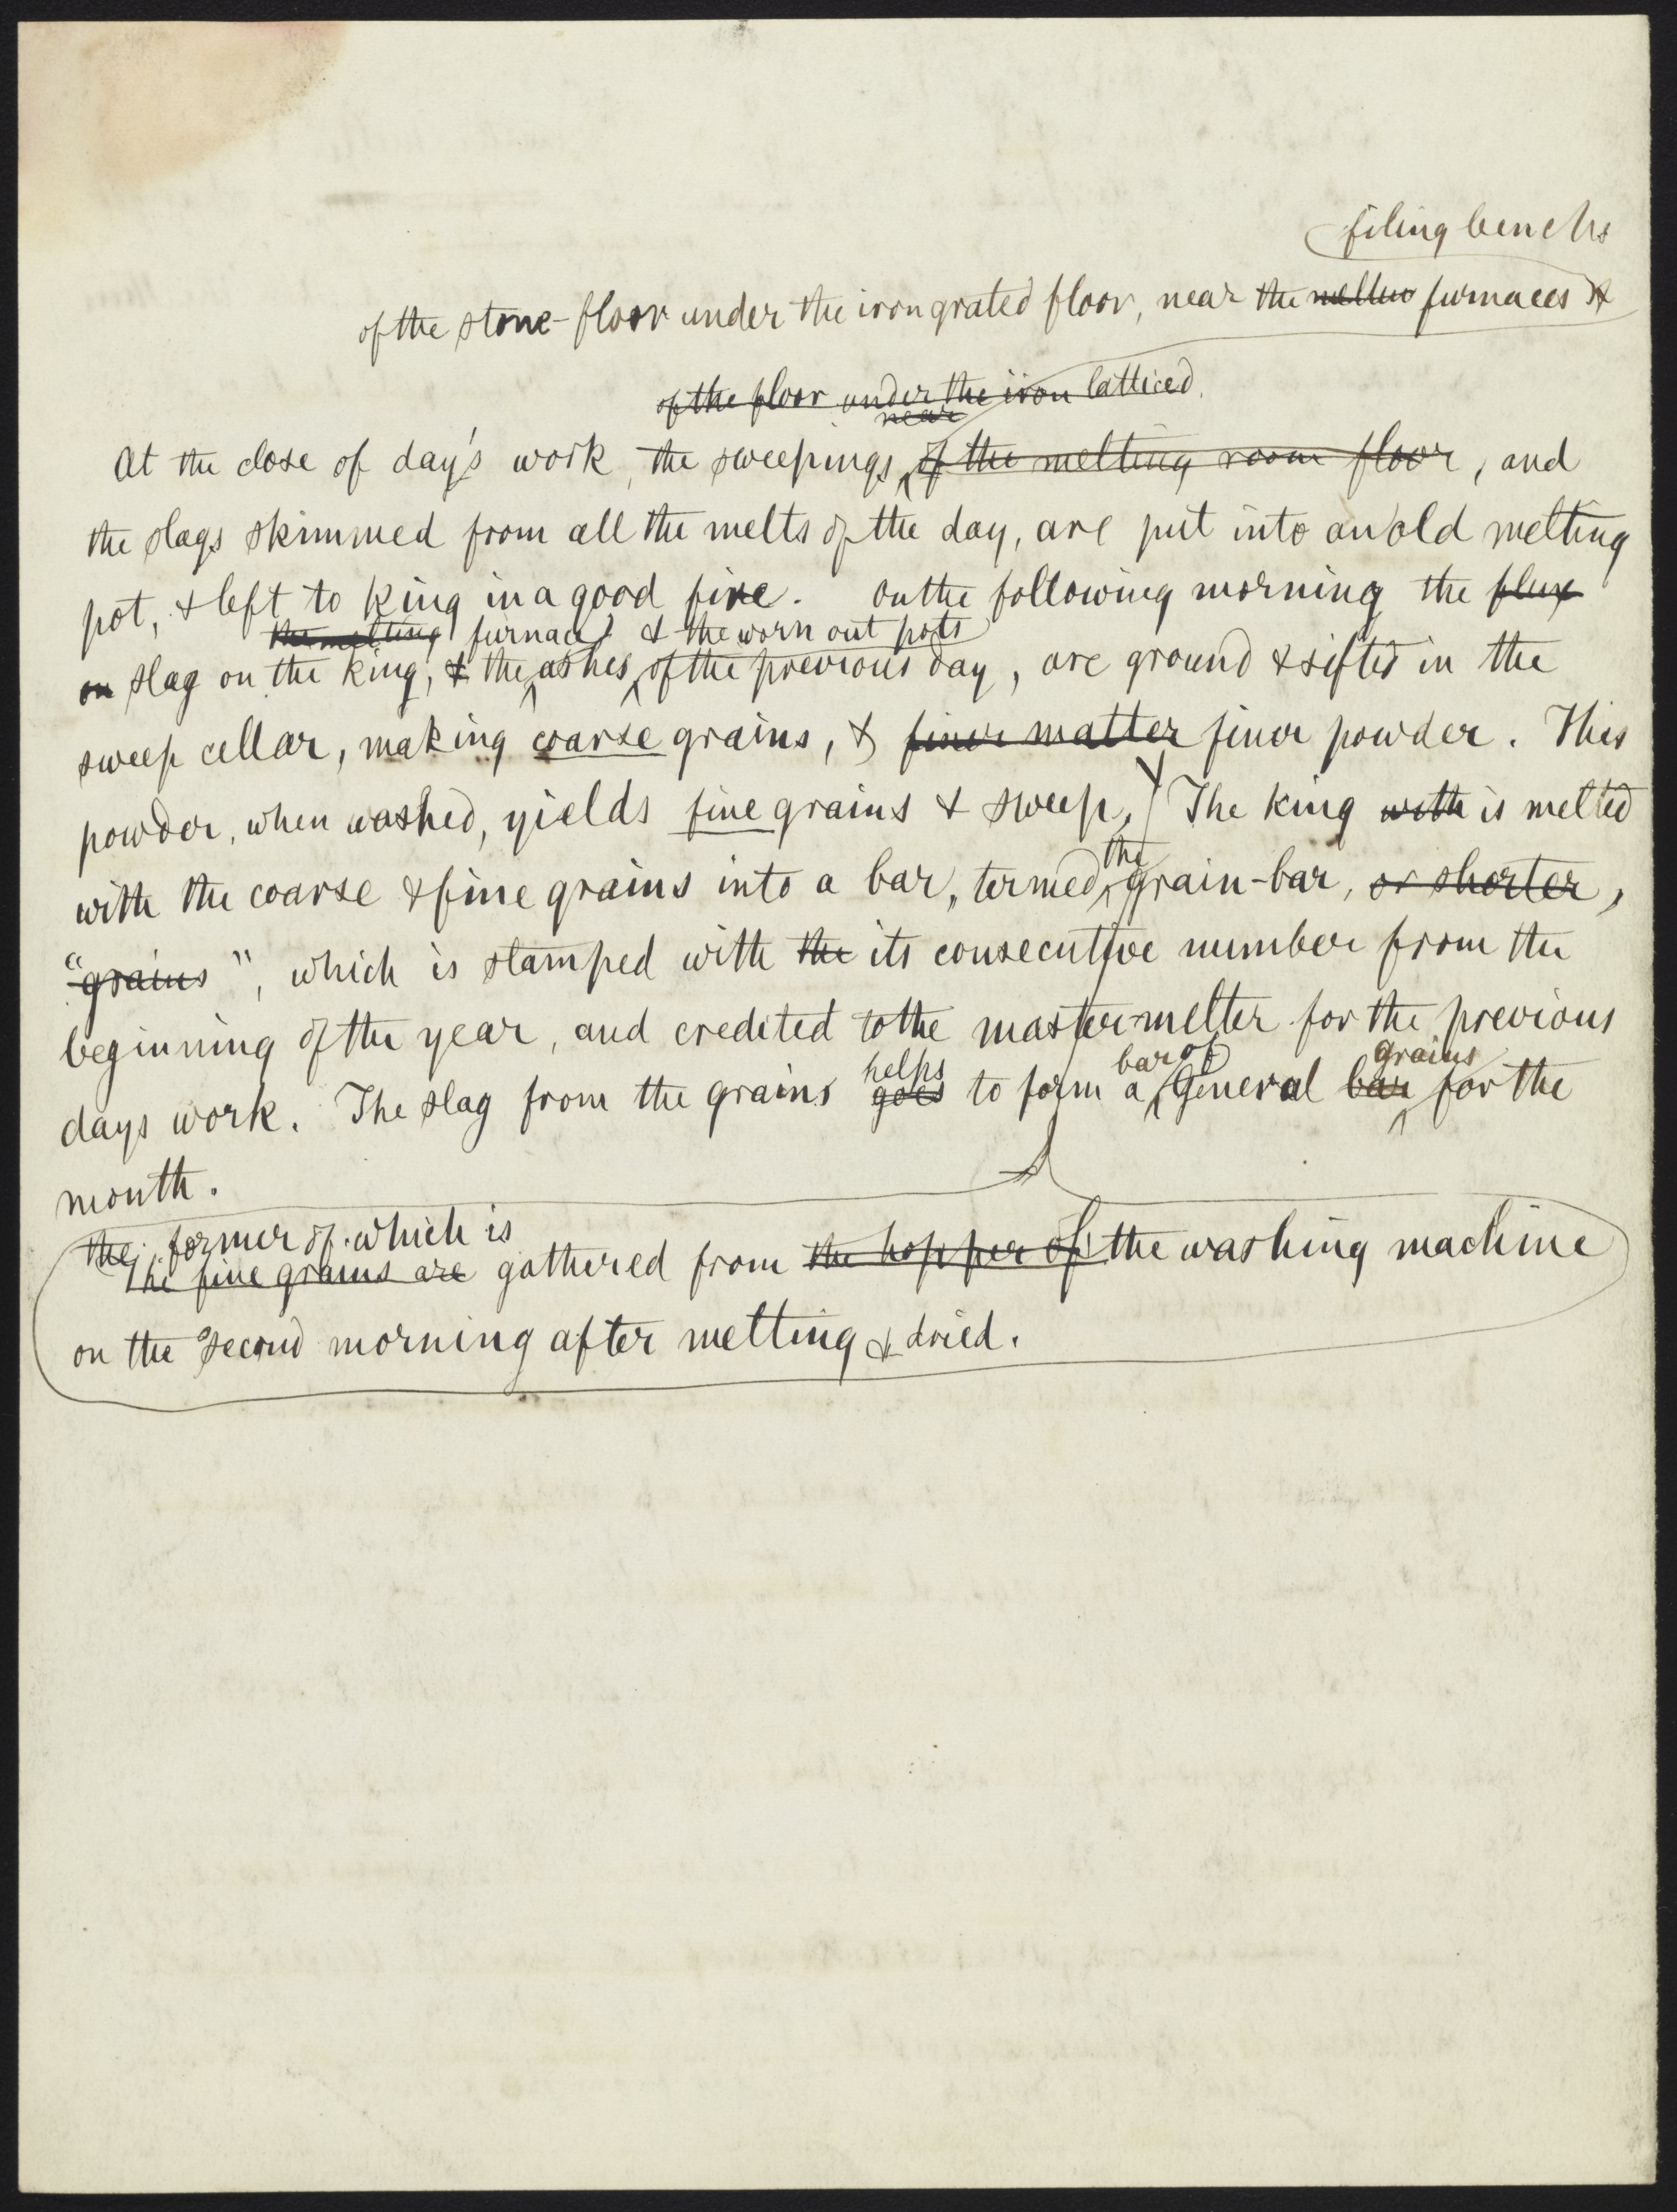 filing benchs
of the stone-floor under the iron grated floor, near the melter furnaces &
of the floor under the iron latticed
near
At the close of day's work, the sweepings of the melting room floor, and
the slags skimmed from all the melts of the day, are put into an old melting
pot, & left to king in a good fire. On the following morning the flux
the melting furnace & the worn out pots
on slag on the king, & the ashes of the previous day, are ground & sifted in the
sweep cellar, making coarse grains, & finer matter finer powder. This
powder, when washed, yields fine grains & sweep, The king with is melted
the
with the coarse & fine grains into a bar, termed grain-bar, or shorter,
"grains", which is stamped with the its consecutive number from the
beginning of the year, and credited to the master-melter for the previous
helps bar of grains
days work. The slag from the grains goes to form a General bar for the
month.
the, former of which is
The fine grains are gathered from the hopper of the washing machine
on the second morning after melting & dried.